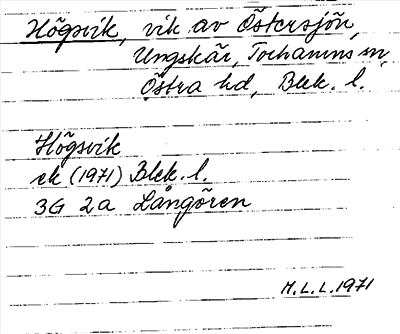 Högsvik, vik av Östersjön,
Ungskär, Torhamns sn,
Östra hd, Blek. l.
Högsvik
ek (1971) Blek. l.
3G 2a Långören
M.L.L. 1971